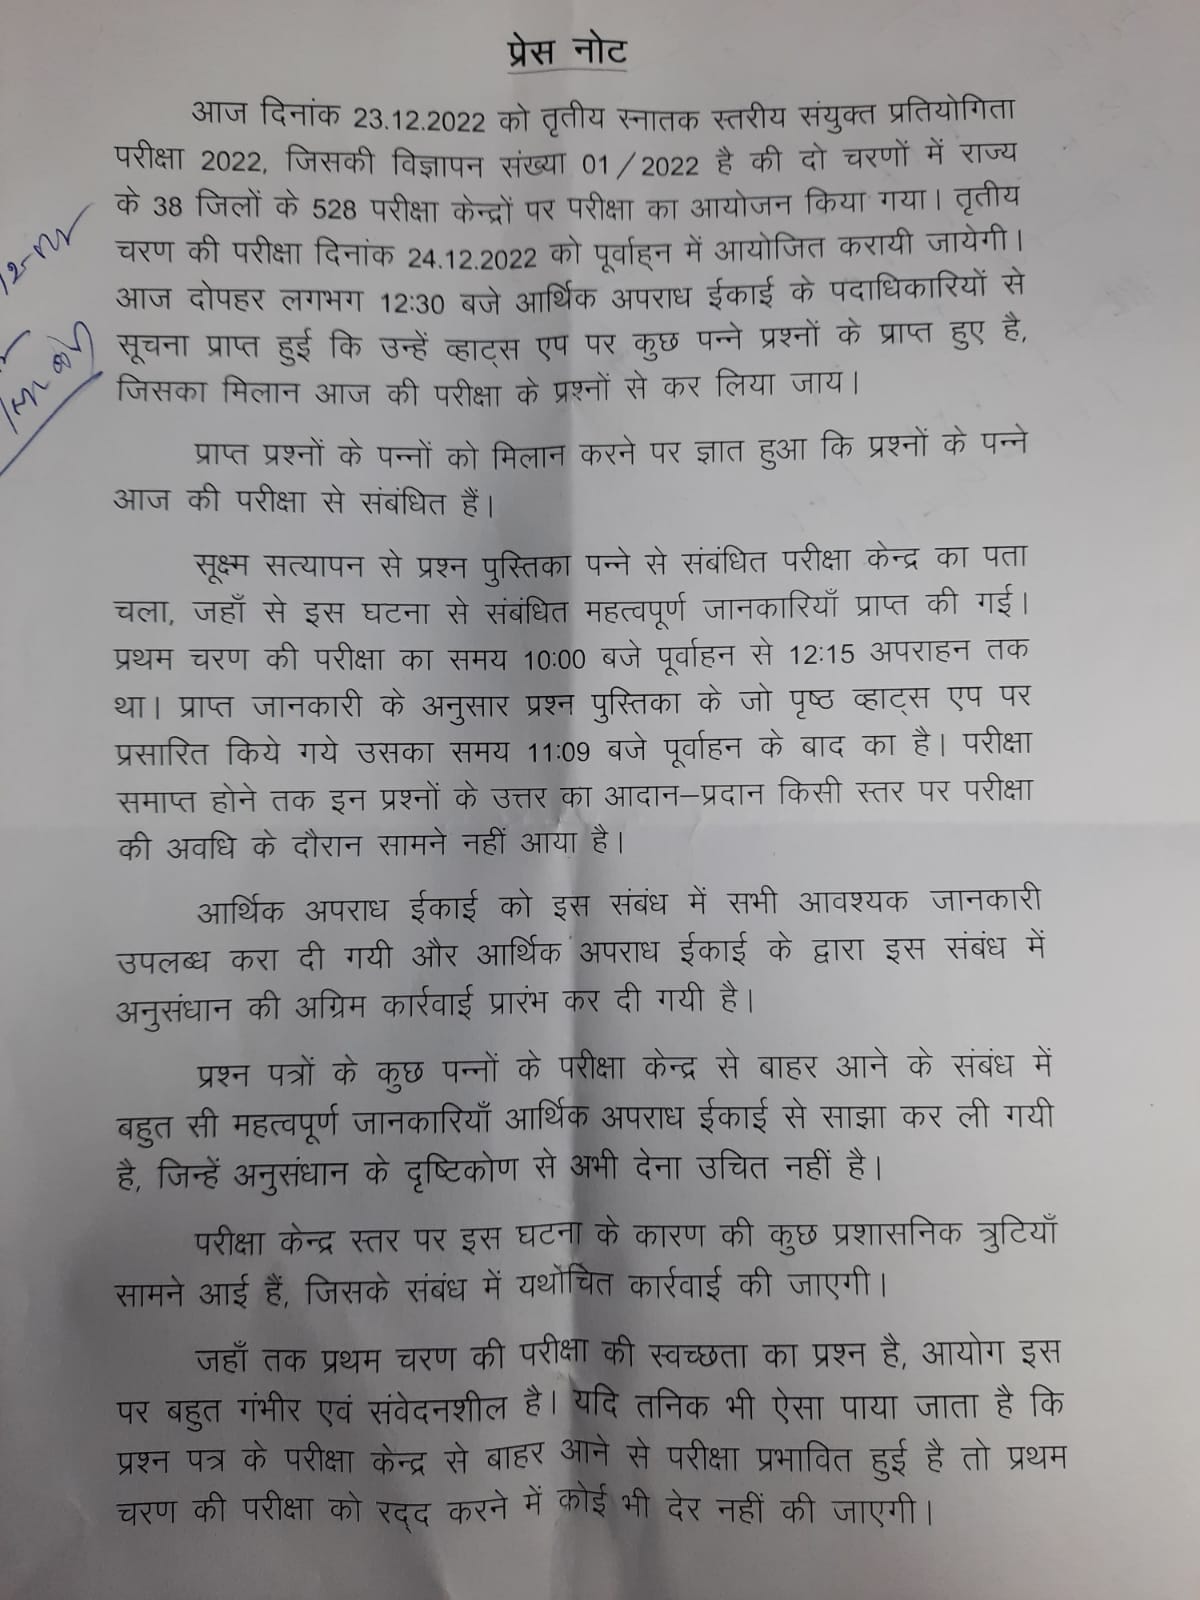 प्रेस नोट
आज दिनांक 23.12.2022 को तृतीय स्नातक स्तरीय संयुक्त प्रतियोगिता
परीक्षा 2022, जिसकी विज्ञापन संख्या 01/2022 है की दो चरणों में राज्य
के 38 जिलों के 528 परीक्षा केन्द्रों पर परीक्षा का आयोजन किया गया। तृतीय
चरण की परीक्षा दिनांक 24.12.2022 को पूर्वाह्न में आयोजित करायी जायेगी।
आज दोपहर लगभग 12:30 बजे आर्थिक अपराध ईकाई के पदाधिकारियों से
सूचना प्राप्त हुई कि उन्हें व्हाट्स एप पर कुछ पन्ने प्रश्नों के प्राप्त हुए है,
जिसका मिलान आज की परीक्षा के प्रश्नों से कर लिया जाय।
प्राप्त प्रश्नों के पन्नों को मिलान करने पर ज्ञात हुआ कि प्रश्नों के पन्ने
आज की परीक्षा से संबंधित हैं।
सूक्ष्म सत्यापन से प्रश्न पुस्तिका पन्ने से संबंधित परीक्षा केन्द्र का पता
चला, जहाँ से इस घटना से संबंधित महत्वपूर्ण जानकारियाँ प्राप्त की गई।
प्रथम चरण की परीक्षा का समय 10:00 बजे पूर्वाहन से 12:15 अपराहन तक
था। प्राप्त जानकारी के अनुसार प्रश्न पुस्तिका के जो पृष्ठ व्हाट्स एप पर
प्रसारित किये गये उसका समय 11:09 बजे पूर्वाहन के बाद का है। परीक्षा
समाप्त होने तक इन प्रश्नों के उत्तर का आदान–प्रदान किसी स्तर पर परीक्षा
की अवधि के दौरान सामने नहीं आया है।
आर्थिक अपराध ईकाई को इस संबंध में सभी आवश्यक जानकारी
उपलब्ध करा दी गयी और आर्थिक अपराध ईकाई के द्वारा इस संबंध में
अनुसंधान की अग्रिम कार्रवाई प्रारंभ कर दी गयी है।
प्रश्न पत्रों के कुछ पन्नों के परीक्षा केन्द्र से बाहर आने के संबंध में
बहुत सी महत्वपूर्ण जानकारियाँ आर्थिक अपराध ईकाई से साझा कर ली गयी
है, जिन्हें अनुसंधान के दृष्टिकोण से अभी देना उचित नहीं है।
परीक्षा केन्द्र स्तर पर इस घटना के कारण की कुछ प्रशासनिक त्रुटियाँ
सामने आई हैं, जिसके संबंध में यथोचित कार्रवाई की जाएगी।
जहाँ तक प्रथम चरण की परीक्षा की स्वच्छता का प्रश्न है, आयोग इस
पर बहुत गंभीर एवं संवेदनशील है। यदि तनिक भी ऐसा पाया जाता है कि
प्रश्न पत्र के परीक्षा केन्द्र से बाहर आने से परीक्षा प्रभावित हुई है तो प्रथम
चरण की परीक्षा को रद्द करने में कोई भी देर नहीं की जाएगी।